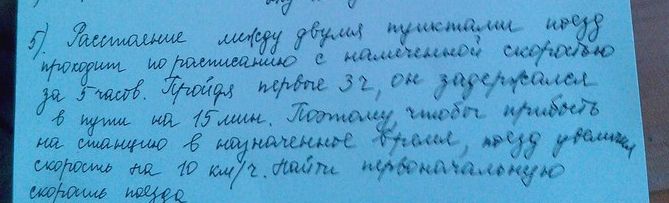 5). Расстояние между двумя пунктами поезд
проходит по расписанию с намеченной скоростью
за 5 часов. Пройдя первые 3 ч, он задержался
в пути на 15 мин. Поэтому, чтобы прибыть
на станцию в назначенное время, поезд увеличил
скорость на 10 км/ч. Найти первоначальную
скорость поезда